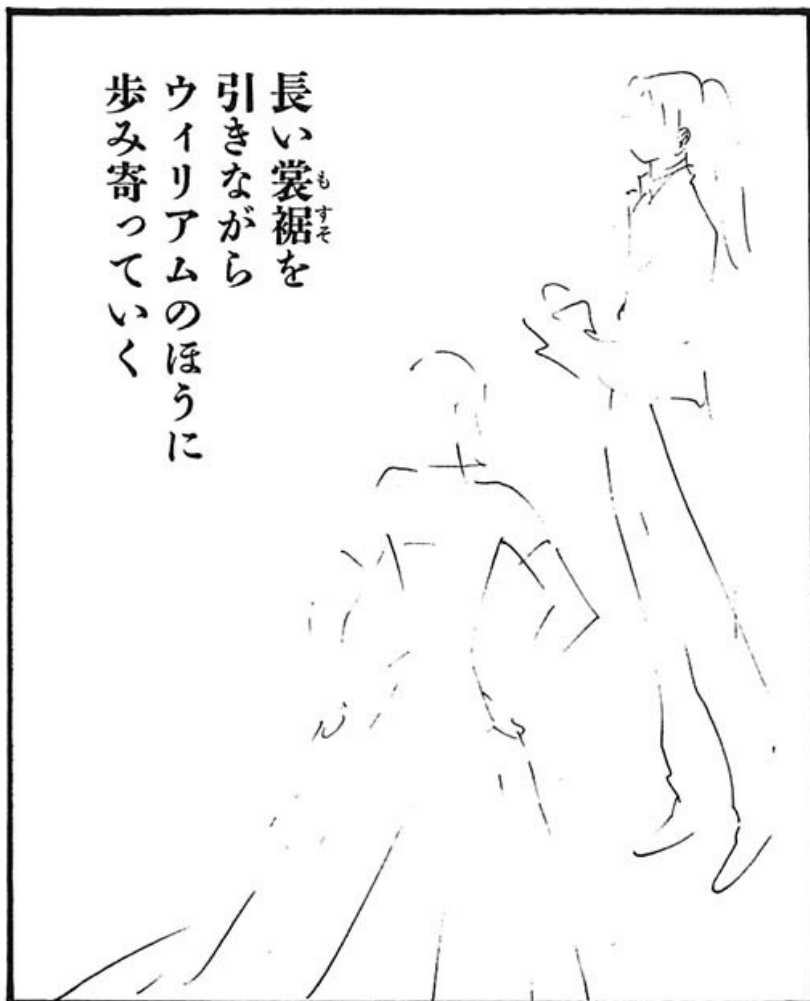 長い裳裾を
引きながら
ウィリアムのほうに
歩み寄っていく